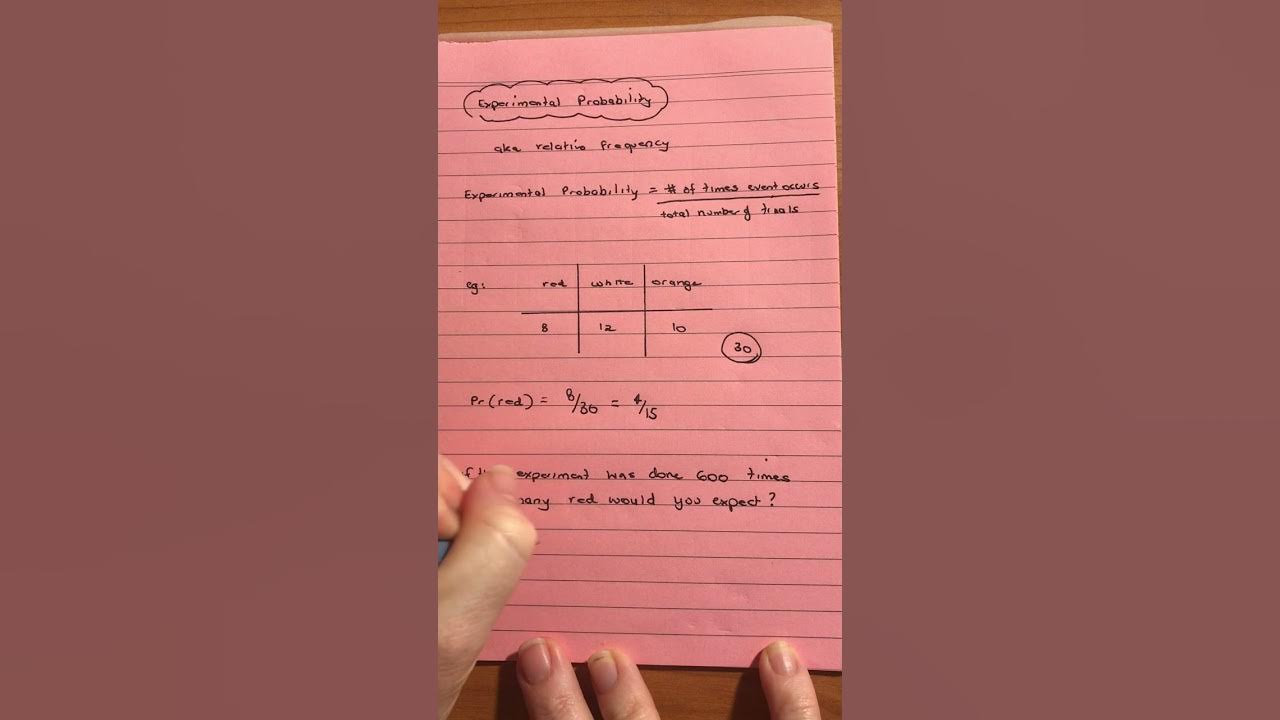 Experimental Probability
aka relative frequency
Experimental Probability = # of times event occurs
total number of trials
eg: red white orange
8 12 10
30
Pr(red) = 8/30 = 4/15
experiment was done 600 times
red would you expect?